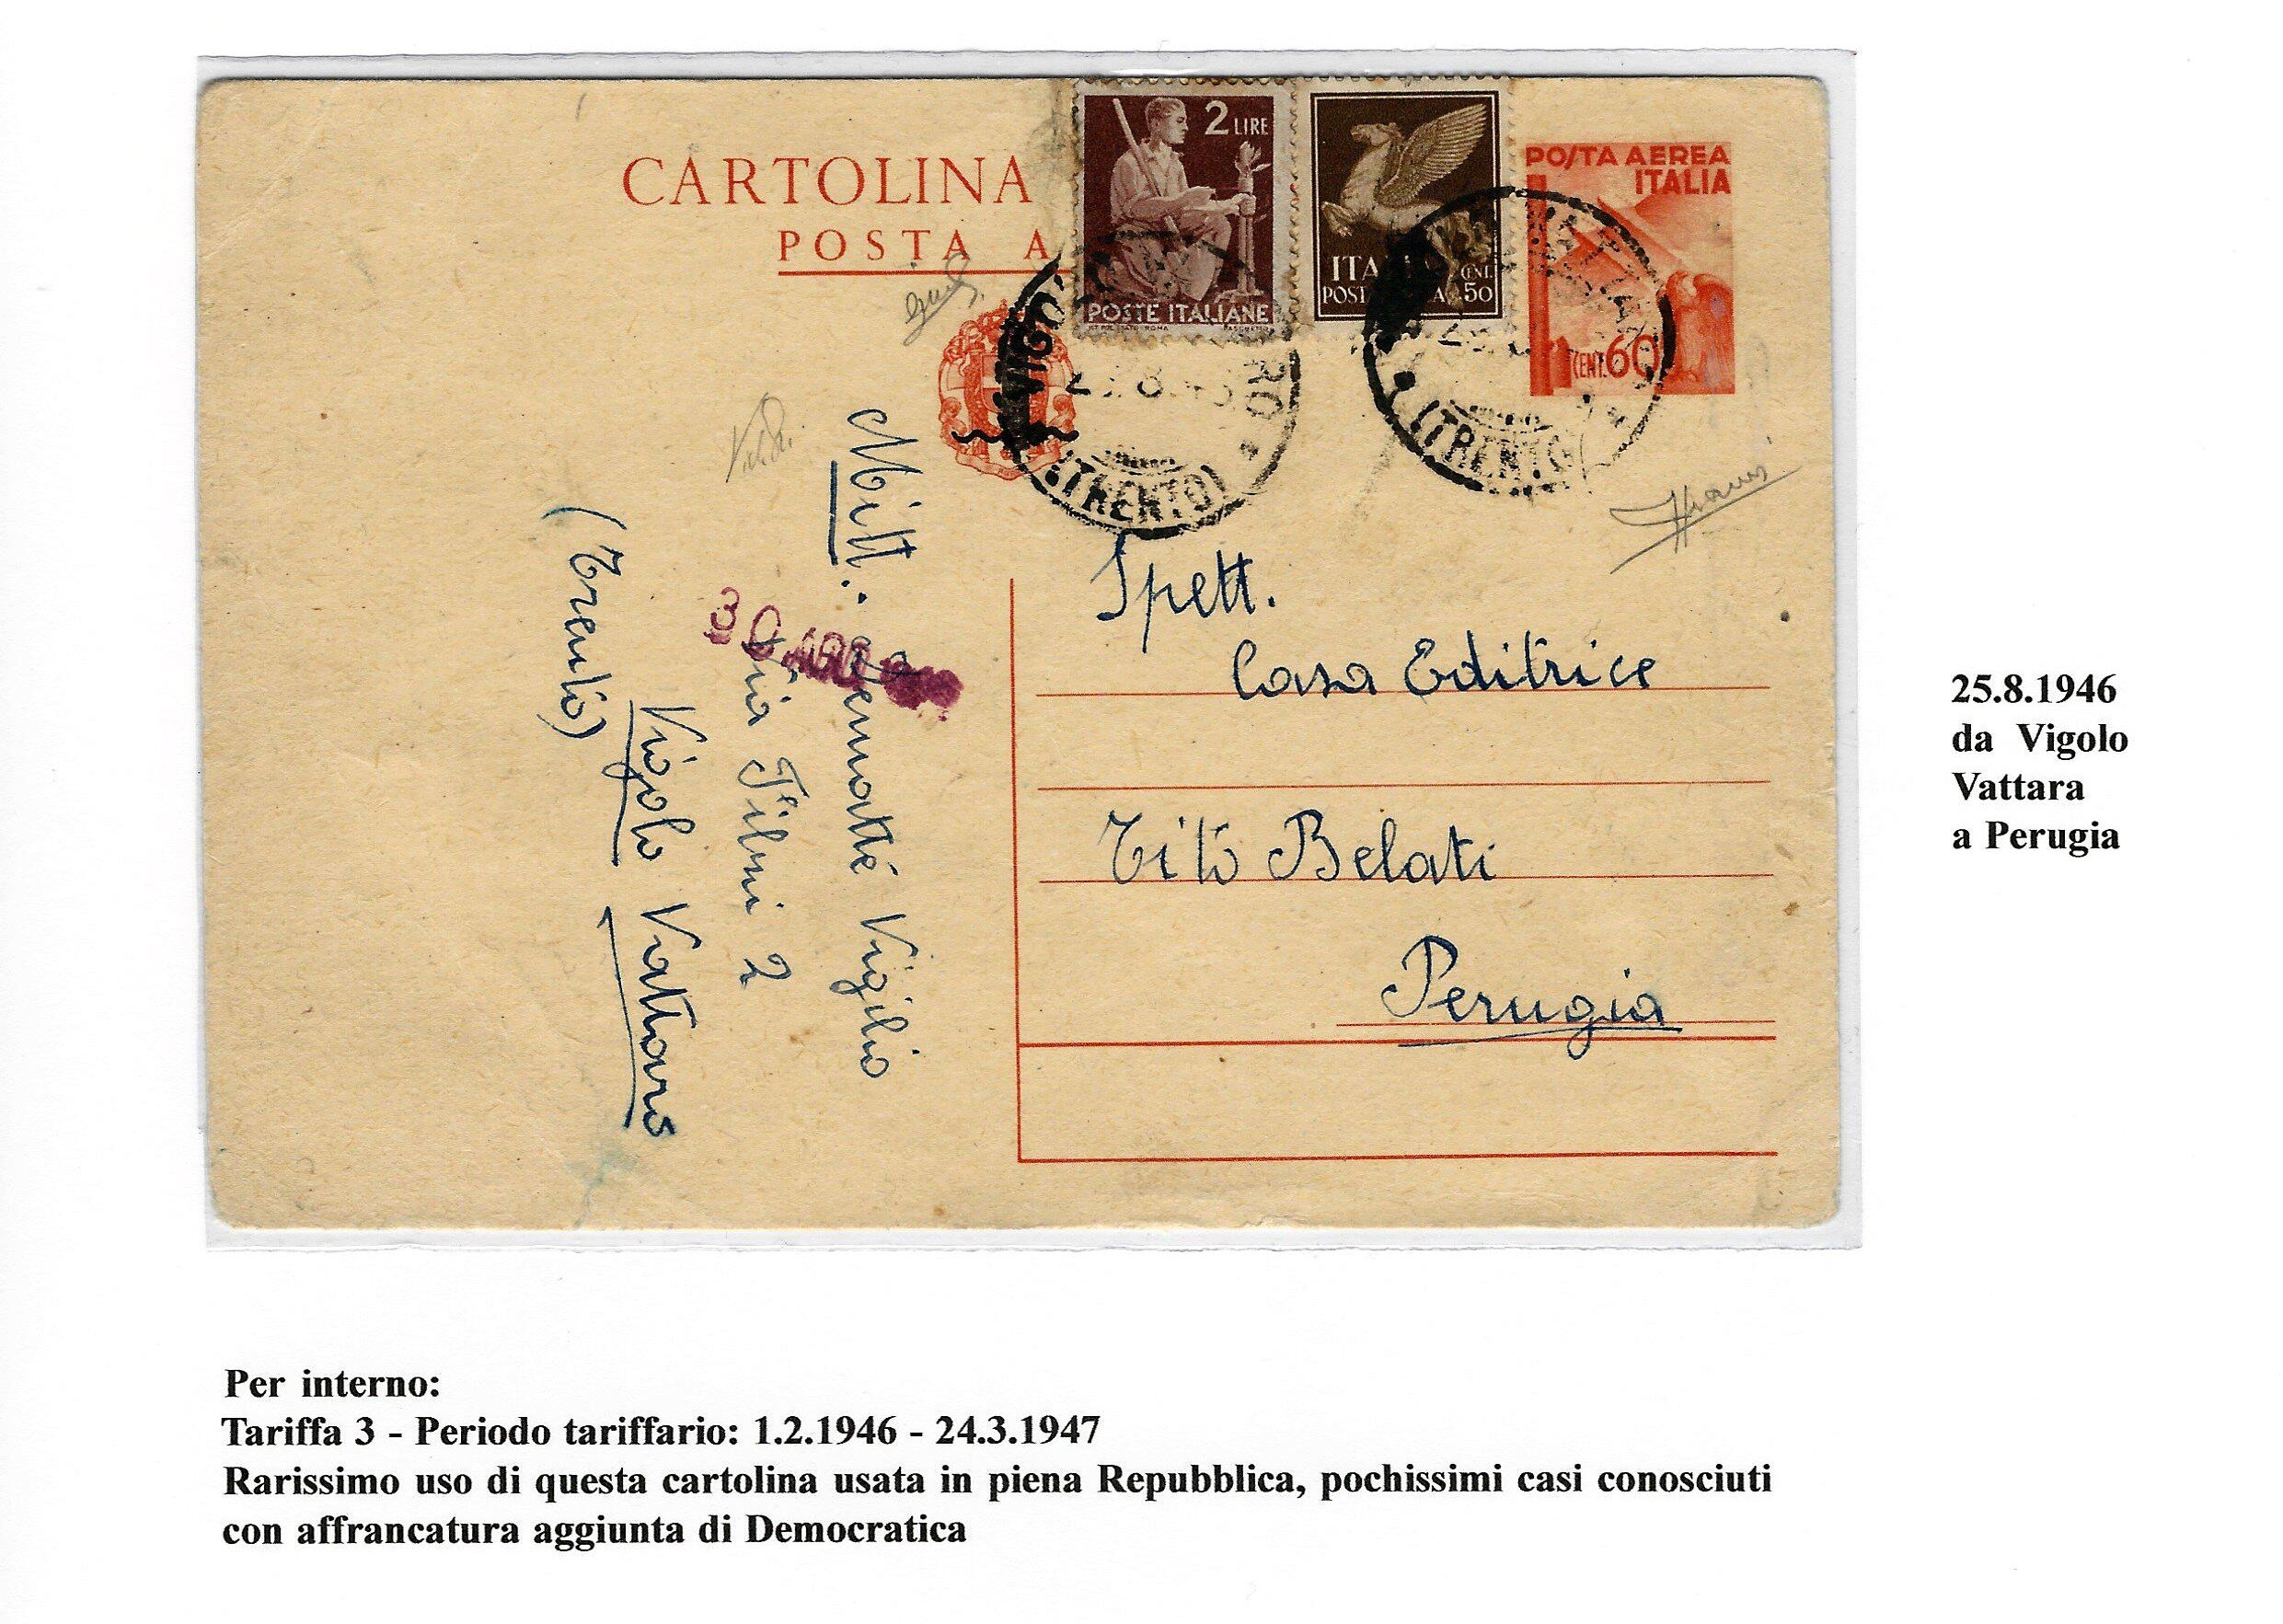 CARTOLINA
POSTA A
2 LIRE
POSTE ITALIANE
ITALIA
CENT. 50
POSTA AEREA
ITALIA
CENT. 60
VIGOLO
(TRENTO)
(TRENTO)
30 AGO
Spett.
Casa Editrice
Tito Belati
Perugia
Mitt: Dematté Vigilio
Via Filmi 2
Vigolo Vattaro
(Trento)
25.8.1946
da Vigolo
Vattara
a Perugia
Per interno:
Tariffa 3 - Periodo tariffario: 1.2.1946 - 24.3.1947
Rarissimo uso di questa cartolina usata in piena Repubblica, pochissimi casi conosciuti
con affrancatura aggiunta di Democratica